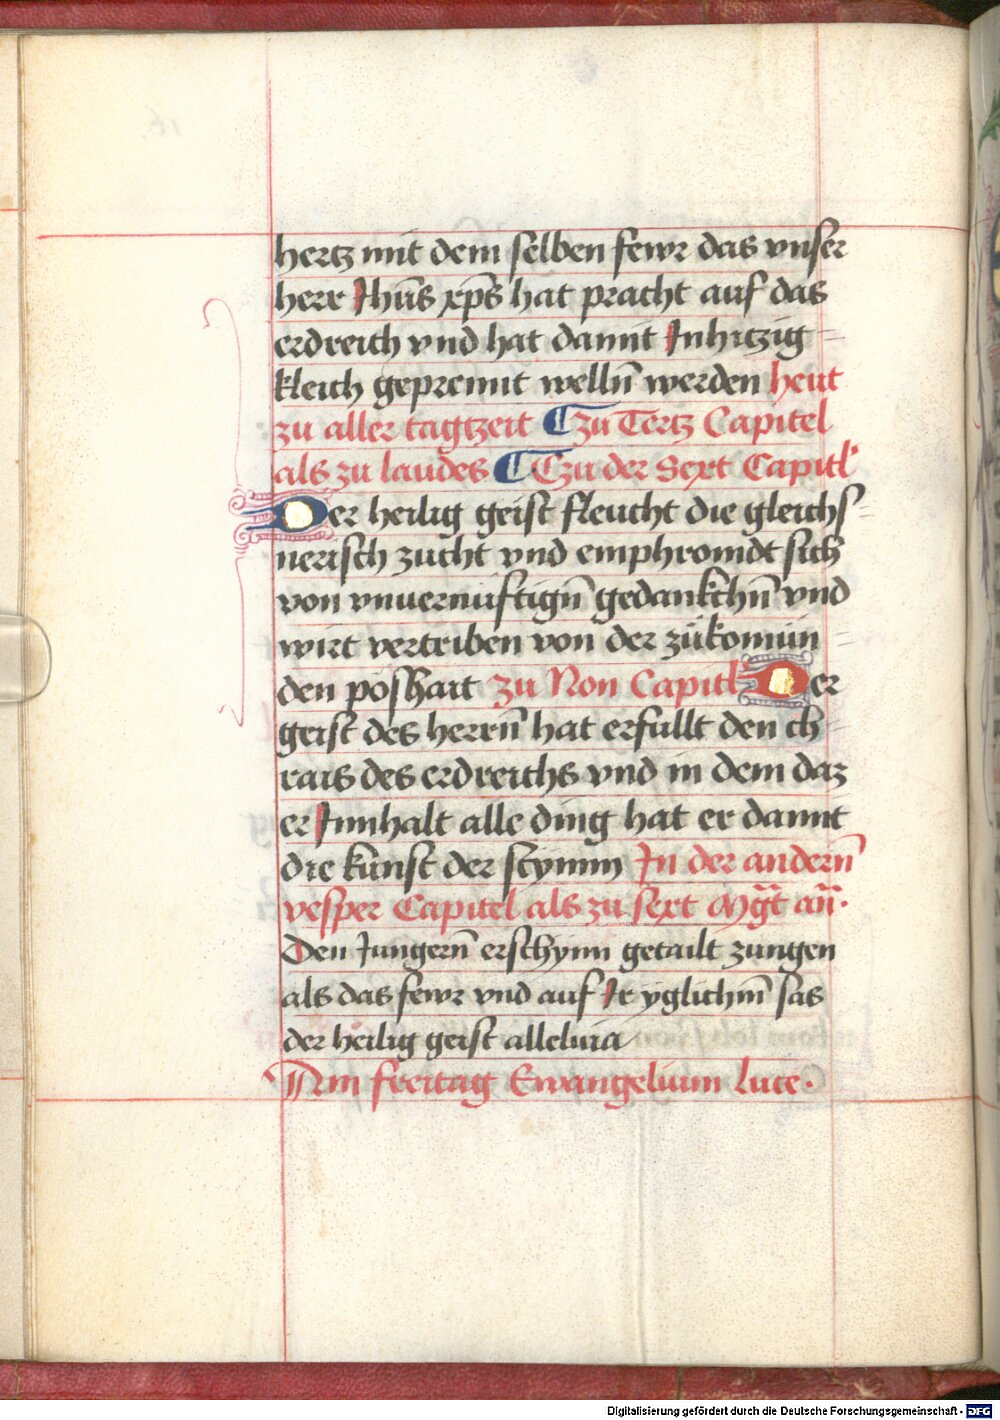 hertz mit dem selben fewr das vnser
herr Jhūs xp̄s hat pracht auf das
erdreich vnd hat damit Jnhitzig
kleich geprennt welln̄ werden heut
zu aller tagtzeit Czu Tertz Capitel
als zu laudes Czu der Sext Capitl
Der heilig geist fleucht die gleichs
nerisch zucht vnd emphromdt sich
von vnuernuftign̄ gedankchn̄ vnd
wirt vertriben von der zůkomūn
den poshait zu Non Capitl Der
geist des herrn̄ hat erfullt den ch
rais des erdreichs vnd in dem daz
er Jnnhalt alle ding hat er damit
die kunst der stymm Jn der andern̄
vesper Capitel als zu sext Mḡt an̄.
Den Jungern̄ erschynn getailt zungen
als das fewr vnd auf Jr yglichm̄ sas
der heilig geist alleluia
Am freitag Ewangelium luce.
Digitalisierung gefördert durch die Deutsche Forschungsgemeinschaft - DFG